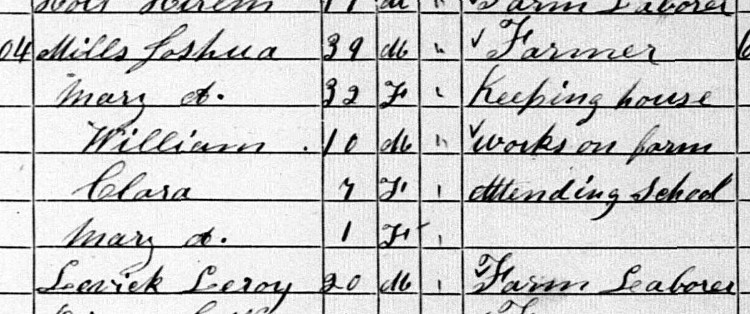 Holt Hirem 17 M " Farm Laborer
04 Mills Joshua 39 M " ✓ Farmer 6
Mary A. 32 F " Keeping house
William . 10 M " ✓ works on farm
Clara 7 F " Attending School
Mary A. 1 F "
Levick Leroy 20 M " ✓ Farm Laborer